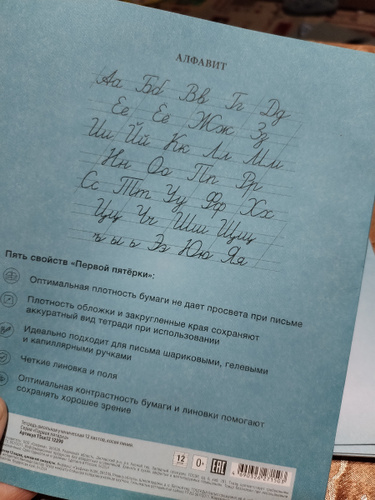 АЛФАВИТ
Аа Бб Вв Гг Дд
Ее Ёё Жж Зз
Ии Йй Кк Лл Мм
Нн Оо Пп Рр
Сс Тт Уу Фф Хх
Цц Чч Шш Щщ
ъ ы ь Ээ Юю Яя
Пять свойств «Первой пятёрки»:
Оптимальная плотность бумаги не дает просвета при письме
Плотность обложки и закругленные края сохраняют
аккуратный вид тетради при использовании
Идеально подходит для письма шариковыми, гелевыми
и капиллярными ручками
Четкие линовка и поля
Оптимальная контрастность бумаги и линовки помогают
сохранять хорошее зрение
Тетрадь школьная ученическая 12 листов, косая линия
Серия «Первая пятёрка»
12
0+